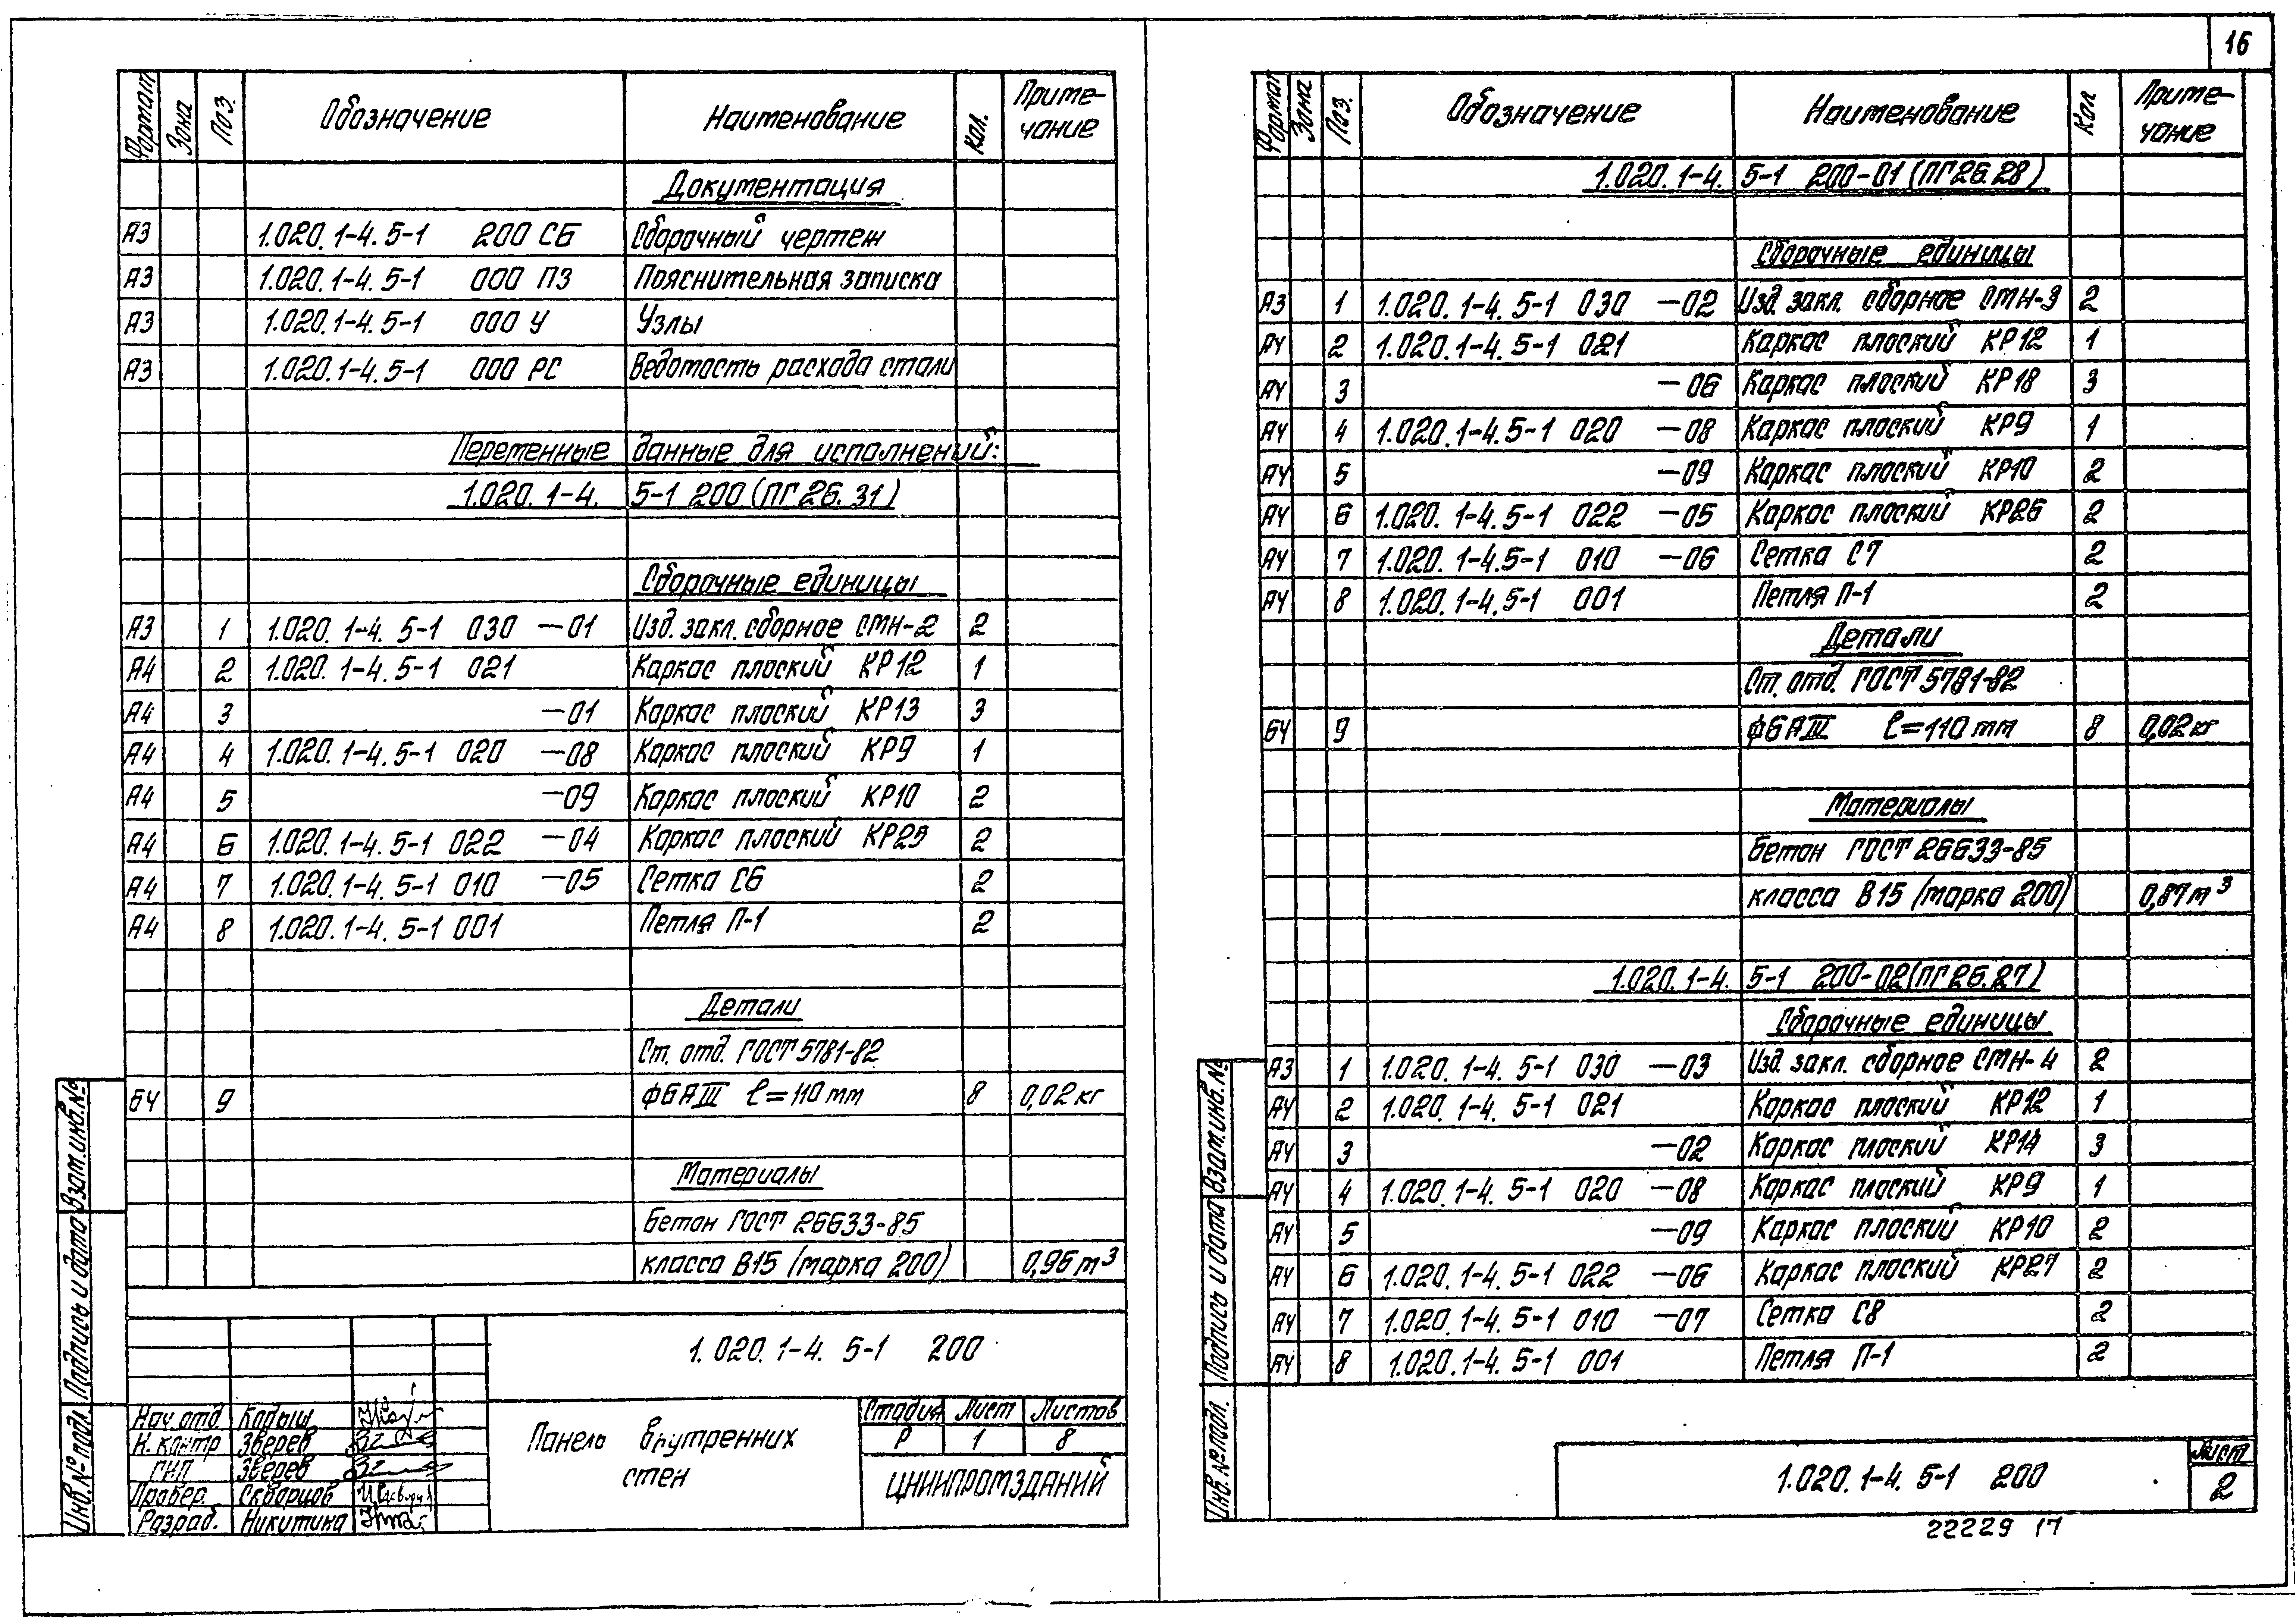 16
Формат Зона Поз. Обозначение Наименование Кол. Приме-
чание
Документация
А3 1.020.1-4.5-1 200 СБ Сборочный чертеж
А3 1.020.1-4.5-1 000 ПЗ Пояснительная записка
А3 1.020.1-4.5-1 000 У Узлы
А3 1.020.1-4.5-1 000 РС Ведомость расхода стали
Переменные данные для исполнений:
1.020.1-4. 5-1 200 (ПГ26.31)
Сборочные единицы
А3 1 1.020.1-4.5-1 030 -01 Изд. закл. сборное СМН-2 2
А4 2 1.020.1-4.5-1 021 Каркас плоский КР12 1
А4 3 -01 Каркас плоский КР13 3
А4 4 1.020.1-4.5-1 020 -08 Каркас плоский КР9 1
А4 5 -09 Каркас плоский КР10 2
А4 6 1.020.1-4.5-1 022 -04 Каркас плоский КР25 2
А4 7 1.020.1-4.5-1 010 -05 Сетка С6 2
А4 8 1.020.1-4.5-1 001 Петля П-1 2
Детали
Ст. отд. ГОСТ 5781-82
БЧ 9 ф6АIII ℓ=110мм 8 0,02кг
Материалы
Бетон ГОСТ 26633-85
класса В15 (марка 200) 0,96м³
1.020.1-4.5-1 200
Нач.отд. Кодыш
Н.контр Зверев
ГИП Зверев
Провер. Скворцов
Разраб. Никитина
Панель внутренних
стен
Стадия Лист Листов
Р 1 8
ЦНИИПРОМЗДАНИЙ
Инв.№ подл. Подпись и дата Взам.инв.№
Формат Зона Поз. Обозначение Наименование Кол Приме-
чание
1.020.1-4. 5-1 200-01 (ПГ26.28)
Сборочные единицы
А3 1 1.020.1-4.5-1 030 -02 Изд. закл. сборное СМН-3 2
А4 2 1.020.1-4.5-1 021 Каркас плоский КР12 1
А4 3 -06 Каркас плоский КР18 3
А4 4 1.020.1-4.5-1 020 -08 Каркас плоский КР9 1
А4 5 -09 Каркас плоский КР10 2
А4 6 1.020.1-4.5-1 022 -05 Каркас плоский КР26 2
А4 7 1.020.1-4.5-1 010 -06 Сетка С7 2
А4 8 1.020.1-4.5-1 001 Петля П-1 2
Детали
Ст. отд. ГОСТ 5781-82
БЧ 9 ф6АIII ℓ=110мм 8 0,02кг
Материалы
Бетон ГОСТ 26633-85
класса В15 (марка 200) 0,87м³
1.020.1-4. 5-1 200-02 (ПГ26.27)
Сборочные единицы
А3 1 1.020.1-4.5-1 030 -03 Изд. закл. сборное СМН-4 2
А4 2 1.020.1-4.5-1 021 Каркас плоский КР12 1
А4 3 -02 Каркас плоский КР14 3
А4 4 1.020.1-4.5-1 020 -08 Каркас плоский КР9 1
А4 5 -09 Каркас плоский КР10 2
А4 6 1.020.1-4.5-1 022 -06 Каркас плоский КР27 2
А4 7 1.020.1-4.5-1 010 -07 Сетка С8 2
А4 8 1.020.1-4.5-1 001 Петля П-1 2
Инв.№ подл. Подпись и дата Взам.инв.№
1.020.1-4.5-1 200
Лист
2
22229 17